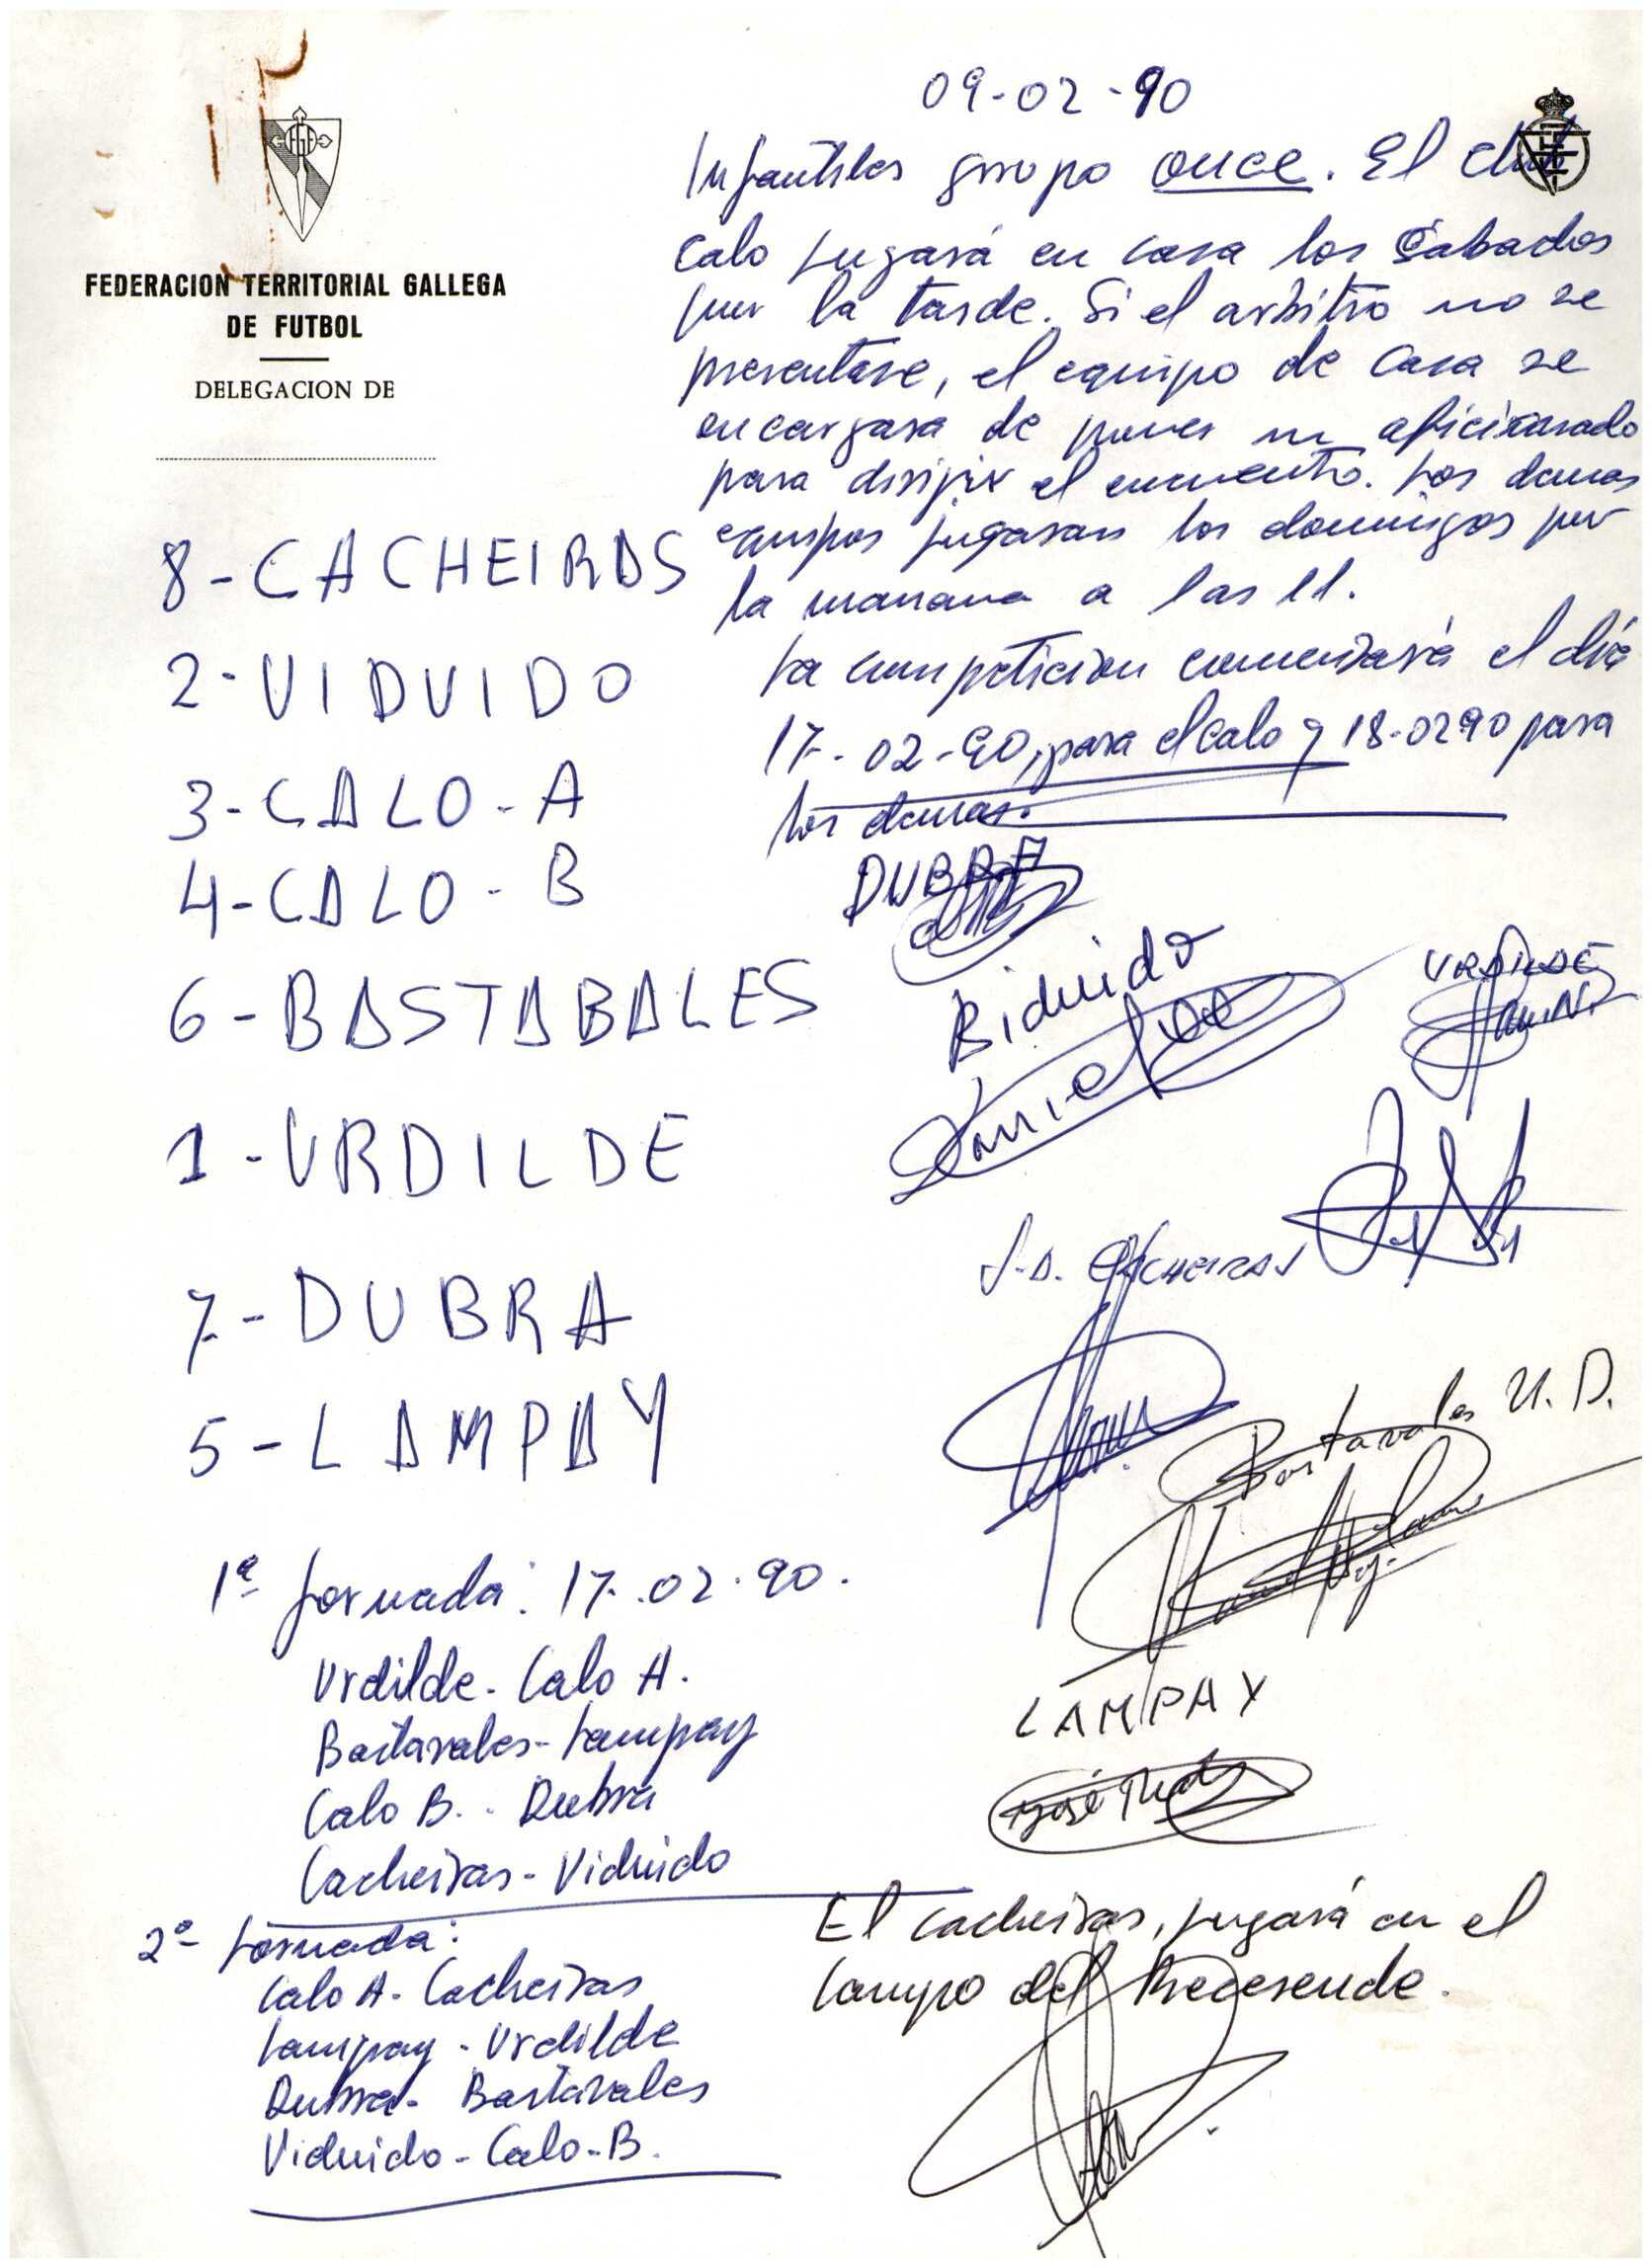 09-02-90
FEDERACION TERRITORIAL GALLEGA
DE FUTBOL
DELEGACION DE
Infantiles grupo once. El club
Calo jugará en casa los Sabados
por la tarde. Si el arbitro no se
presentase, el equipo de casa se
encargara de poner un aficionado
para dirijir el encuentro. Los demas
equipos jugaran los domingos por
la manana a las 11.
La competicion comenzará el día
17-02-90, para el Calo y 18-0290 para
los demas.
8-CACHEIRAS
2-VIDUIDO
3-CALO-A
4-CALO-B
6-BASTABALES
1-URDILDE
7-DUBRA
5-LAMPAY
DUBRA
Biduido
URDILDE
S.D. CACHEIRAS
Bastavales U.D.
LAMPAY
José
1ª Jornada: 17-02-90.
Urdilde-Calo A.
Bastavales-Lampay
Calo B.-Dubra
Cacheiras-Viduido
2ª Jornada:
Calo A-Cacheiras
Lampay-Urdilde
Dubra-Bastavales
Viduido-Calo-B.
El Cacheiras, jugará en el
Campo del Recesende.